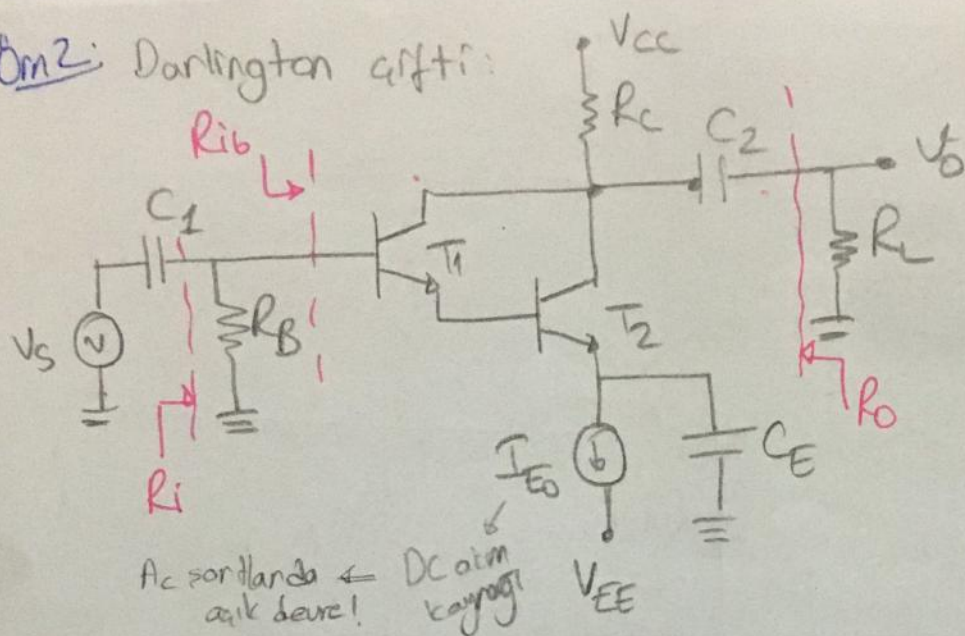 Örn2: Darlington çifti:
VCC
RC
C2
Vo
Rib
C1
T1
RL
VS
RB
T2
Ro
IEo
CE
Ri
Ac şartlarda ⇐ DC akım
açık devre! kaynağı
VEE